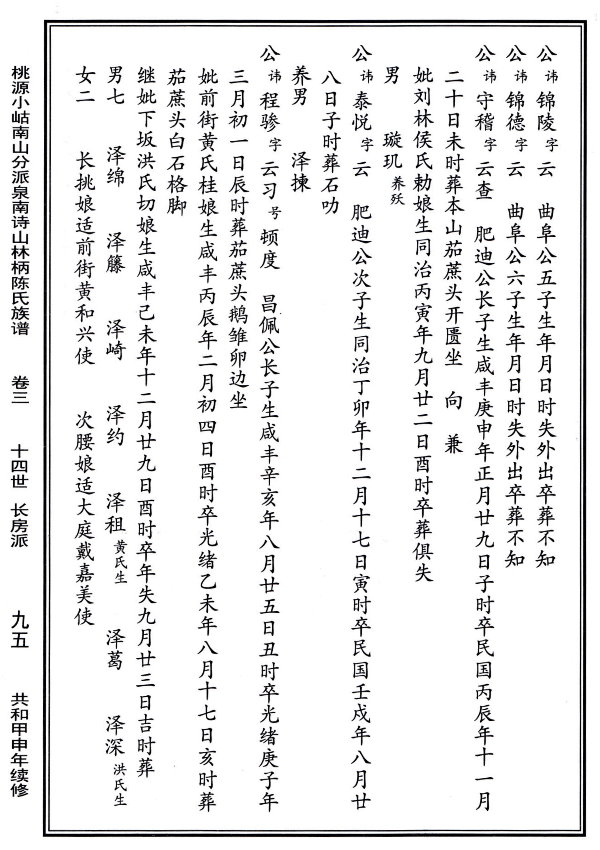 公讳锦陵字云　曲阜公五子生年月日时失外出卒葬不知
公讳锦德字云　曲阜公六子生年月日时失外出卒葬不知
公讳守稽字云查　肥迪公长子生咸丰庚申年正月廿九日子时卒民国丙辰年十一月
二十日未时葬本山茄蔗头开匮坐　向　兼
妣刘林侯氏勅娘生同治丙寅年九月廿二日酉时卒葬俱失
男　璇玑养殀
公讳泰悦字云　肥迪公次子生同治丁卯年十二月十七日寅时卒民国壬戍年八月廿
八日子时葬石叻
养男　泽拣
公讳程骖字云习号顿度　昌佩公长子生咸丰辛亥年八月廿五日丑时卒光绪庚子年
三月初一日辰时葬茄蔗头鹅雏卵边坐
妣前街黄氏桂娘生咸丰丙辰年二月初四日酉时卒光绪乙未年八月十七日亥时葬
茄蔗头白石格脚
继妣下坂洪氏切娘生咸丰己未年十二月廿九日酉时卒年失九月廿三日吉时葬
男七　泽绵　泽籐　泽崎　泽约　泽祖黄氏生　泽葛　泽深洪氏生
女二　长挑娘适前街黄和兴使　次腰娘适大庭戴嘉美使
桃源小岵南山分派泉南诗山林柄陈氏族谱　卷三　十四世　长房派　九五　共和甲申年续修